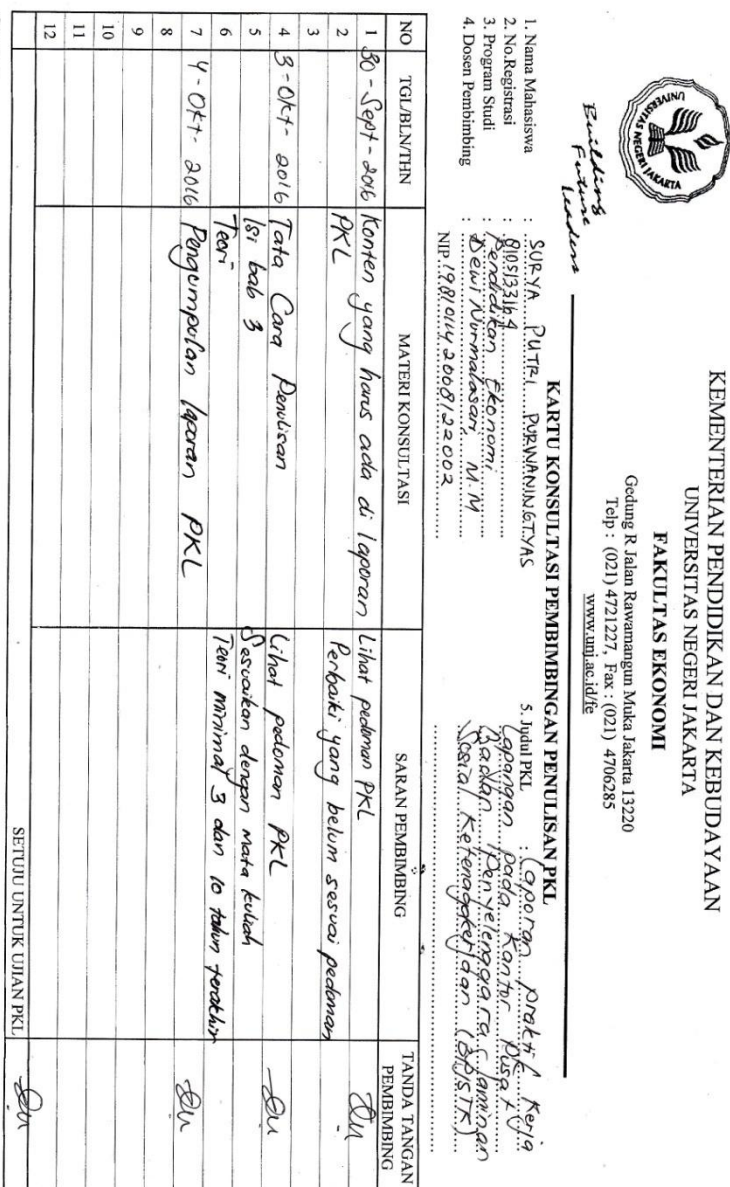 UNIVERSITAS NEGERI JAKARTA
Building
Future
Leaders
KEMENTERIAN PENDIDIKAN DAN KEBUDAYAAN
UNIVERSITAS NEGERI JAKARTA
FAKULTAS EKONOMI
Gedung R Jalan Rawamangun Muka Jakarta 13220
Telp : (021) 4721227, Fax : (021) 4706285
www.unj.ac.id/fe
KARTU KONSULTASI PEMBIMBINGAN PENULISAN PKL
1. Nama Mahasiswa : SURYA PUTRI PURWANINGTYAS
2. No.Registrasi : 8105133164
3. Program Studi : Pendidikan Ekonomi
4. Dosen Pembimbing : Dewi Nurmalasari, M.M
NIP. 198101142008122002
5. Judul PKL : Laporan Praktik Kerja
Lapangan pada Kantor Pusat
Badan Penyelenggara Jaminan
Sosial Ketenagakerjaan (BPJSTK)
NO TGL/BLN/THN MATERI KONSULTASI SARAN PEMBIMBING TANDA TANGAN PEMBIMBING
1 30-Sept-2016 Konten yang harus ada di laporan Lihat pedoman PKL
2 PKL Perbaiki yang belum sesuai pedoman
3
4 3-Okt-2016 Tata Cara Penulisan Lihat pedoman PKL
5 Isi bab 3 Sesuaikan dengan mata kuliah
6 Teori Teori minimal 3 dan 10 tahun terakhir
7 4-Okt-2016 Pengumpulan laporan PKL
8
9
10
11
12
SETUJU UNTUK UJIAN PKL